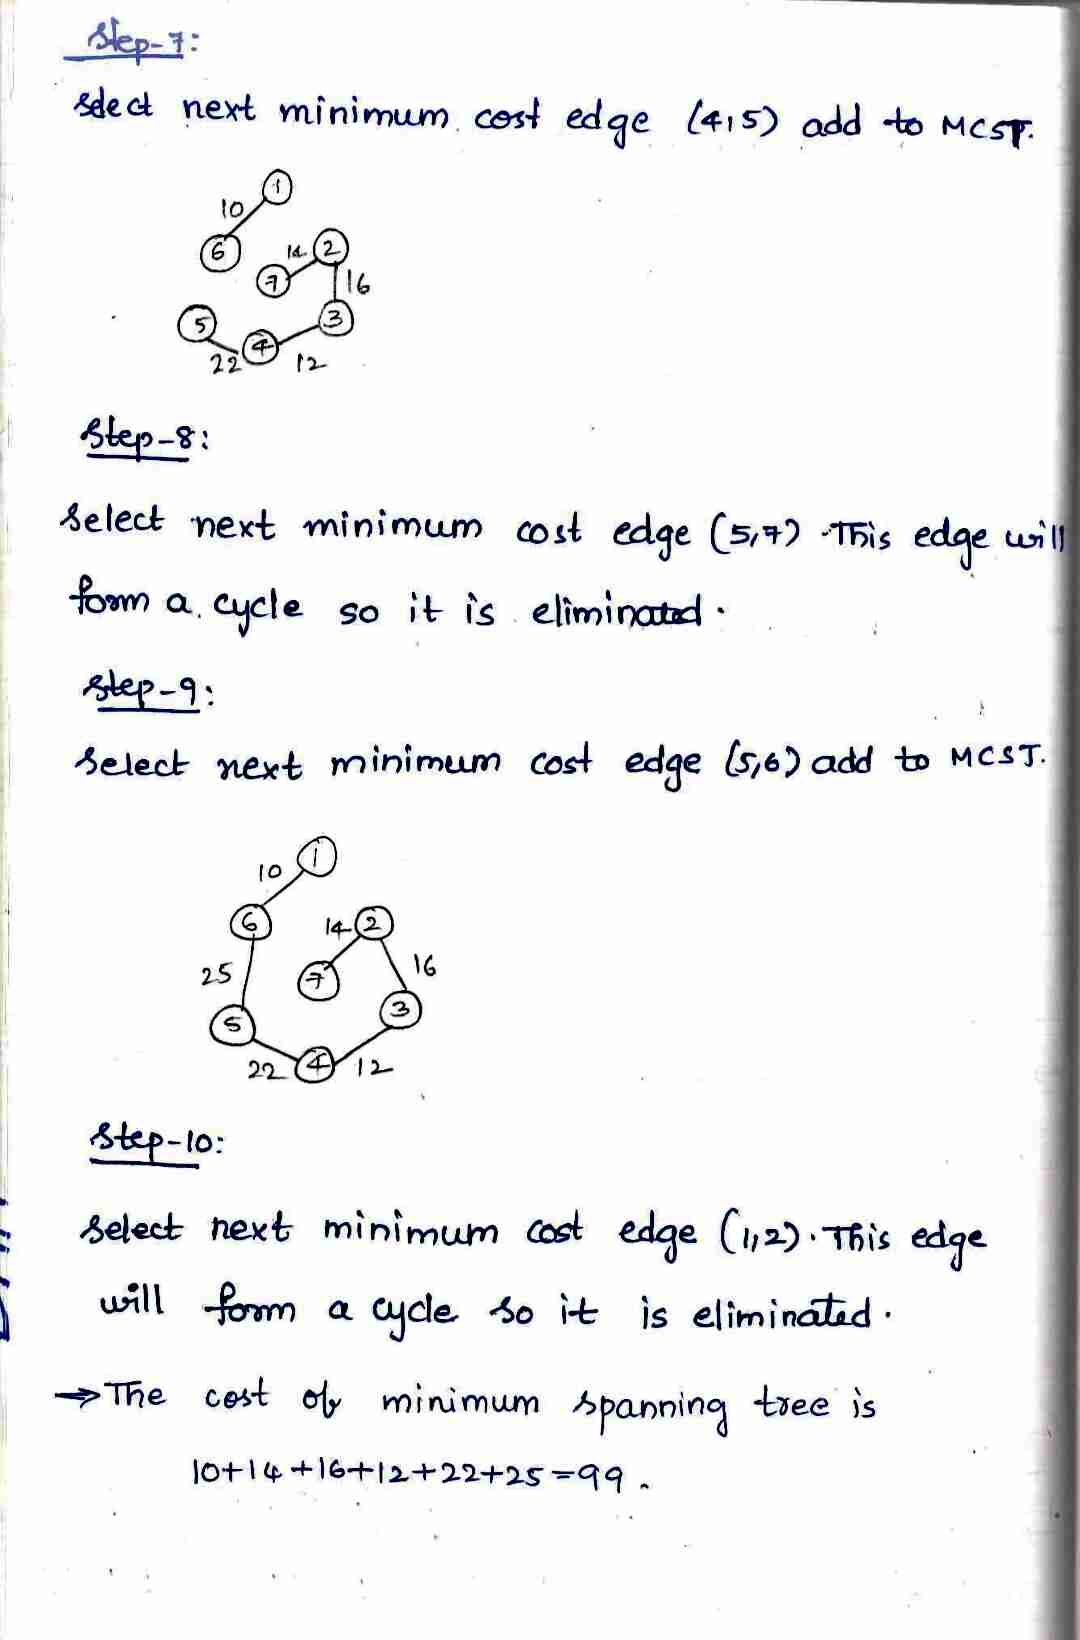 Step-7:
Select next minimum cost edge (4,5) add to MCST.
1
10
6
14
2
7
16
5
3
4
22
12
Step-8:
Select next minimum cost edge (5,7) This edge will
form a cycle so it is eliminated.
Step-9:
Select next minimum cost edge (5,6) add to MCST.
1
10
6
14
2
25
7
16
5
3
22
4
12
Step-10:
Select next minimum cost edge (1,2). This edge
will form a cycle so it is eliminated.
→ The cost of minimum spanning tree is
10+14+16+12+22+25=99.